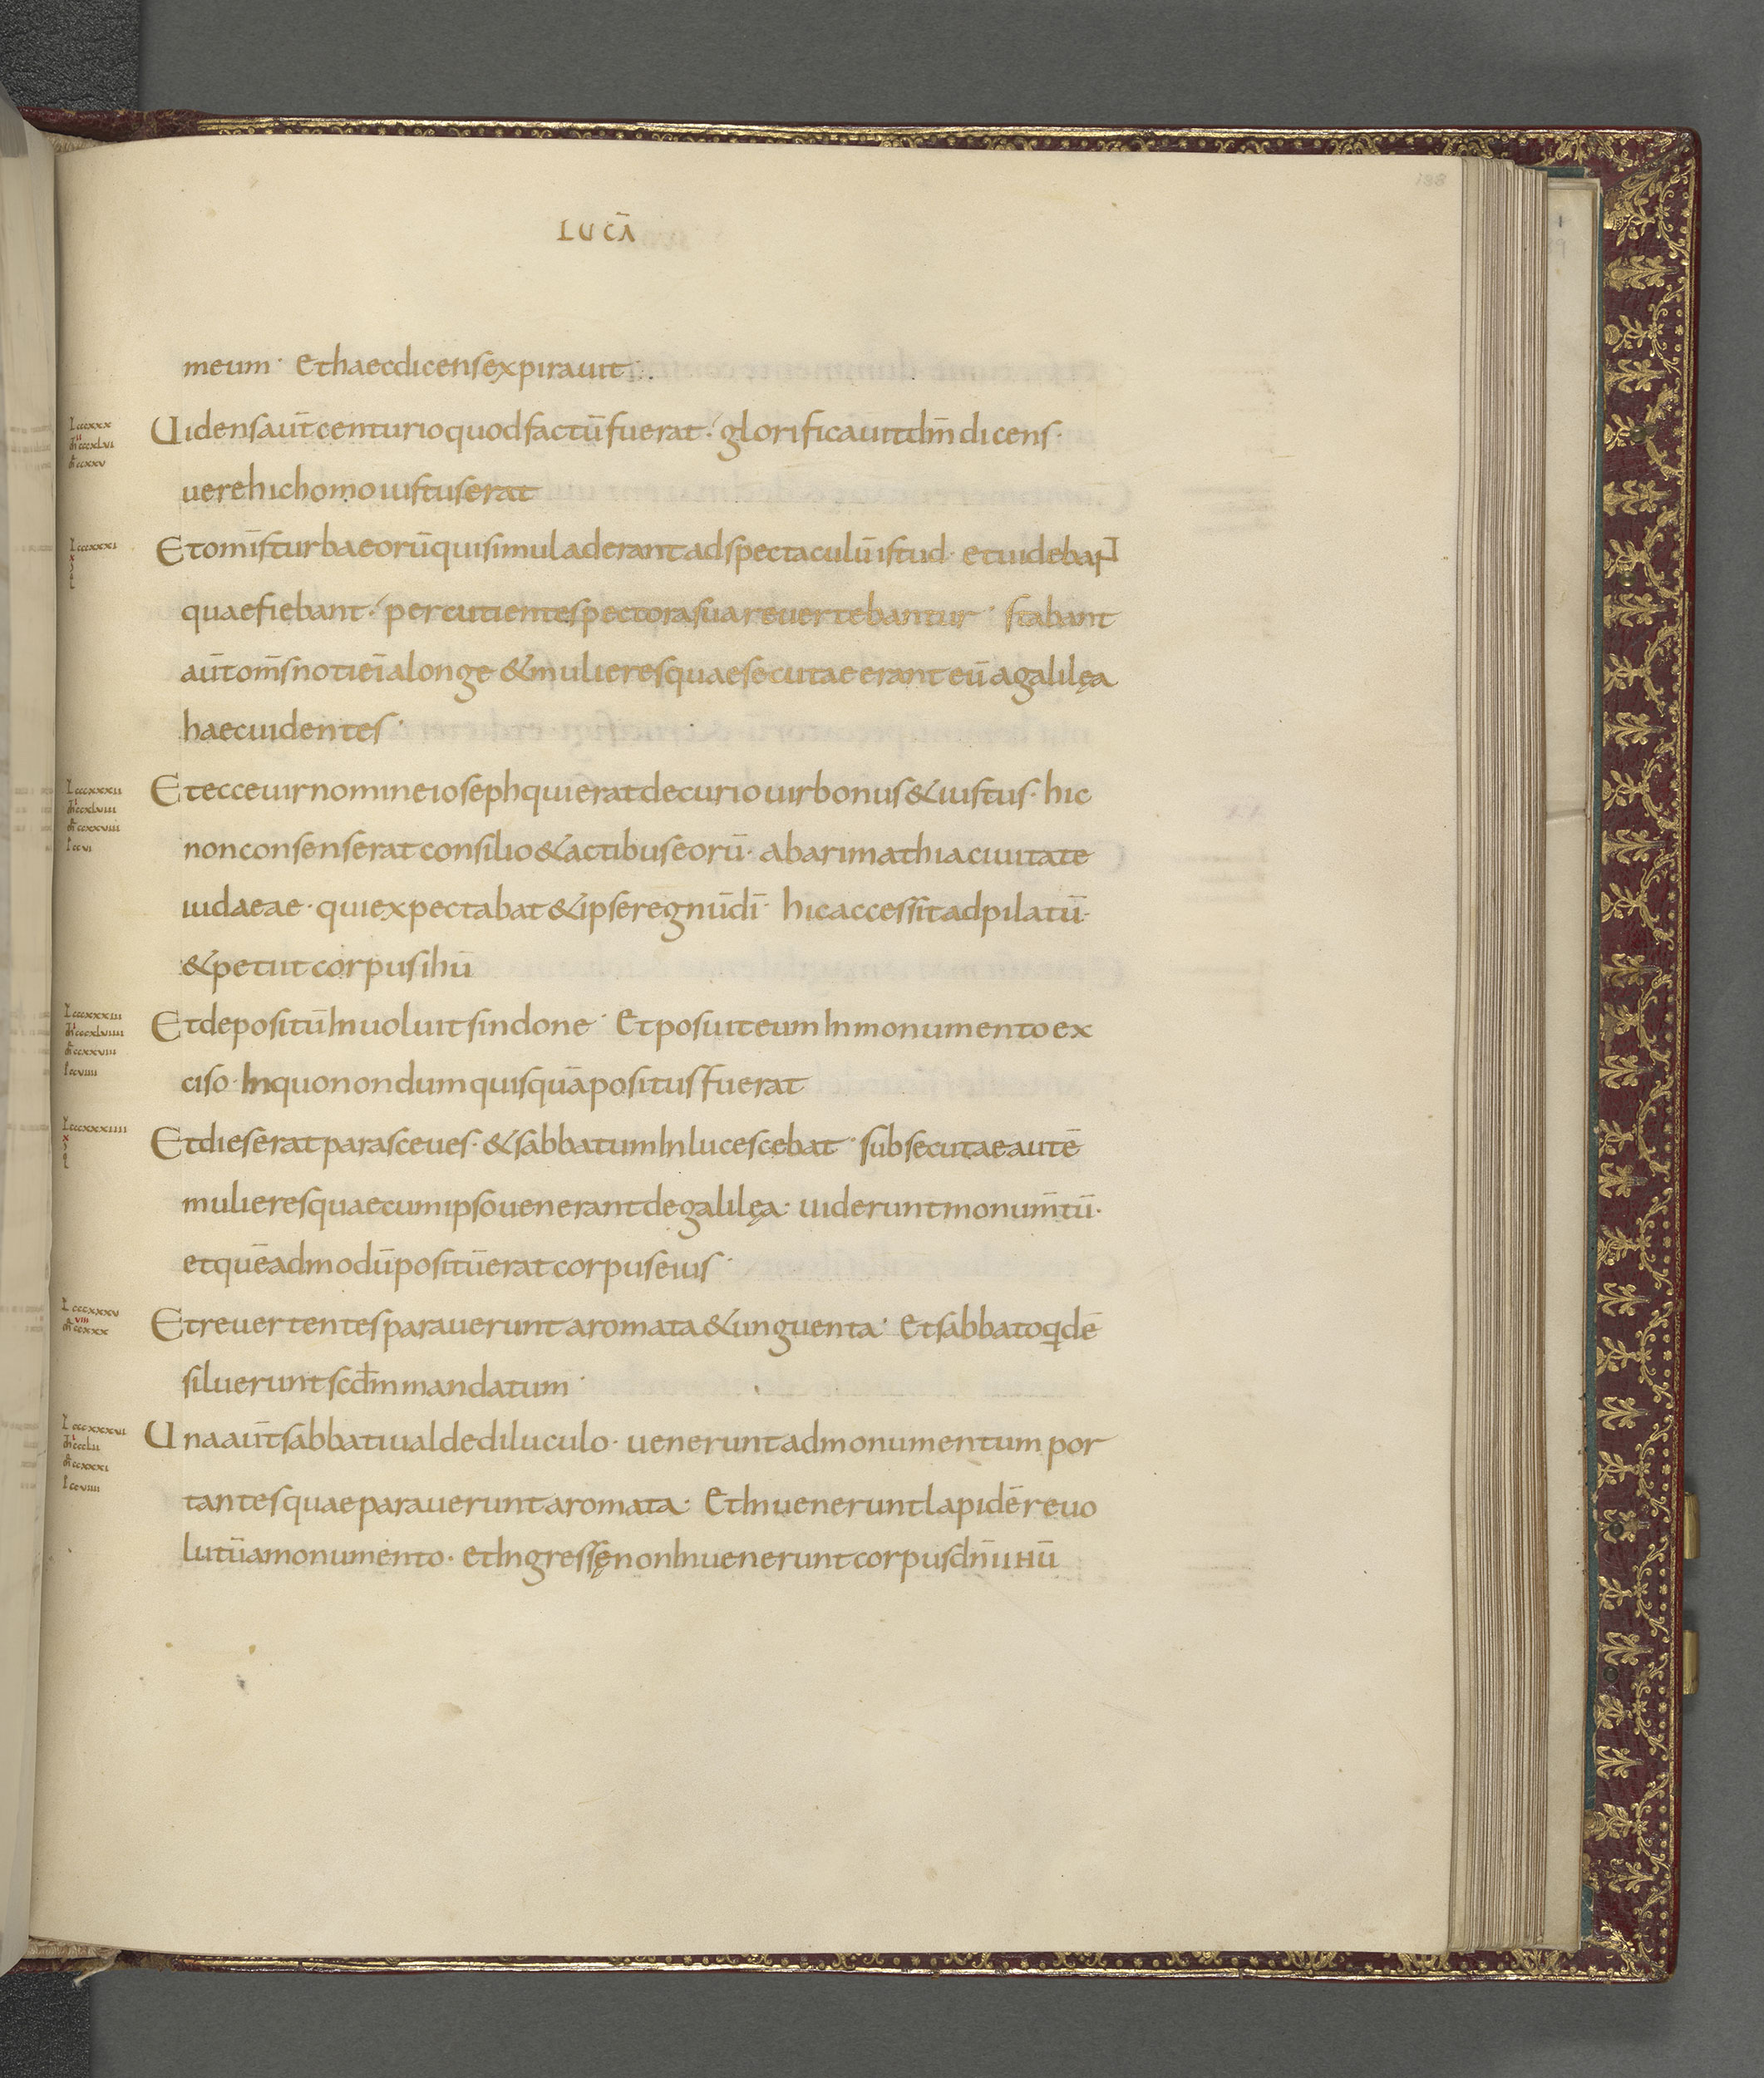 188
LUCĀ
meum· Ethaecdicensexpirauit·
Uidensaūtcenturioquodfactūfuerat· glorificauitdm̄dicens·
uerehichomoiustuserat
Etom̄sturbaeorūquisimuladerantadspectaculūistud· etuidebaɴᴛ
quaefiebant· percutientespectorasuareuertebantur· stabant
aūtom̄snotieīalonge &mulieresquaesecutaeeranteūagalilęa
haecuidentes·
Etecceuirnomineiosephquieratdecuriouirbonus&iustus· hic
nonconsenseratconsilio&actibuseorū· abarimathiaciuitate
iudaeae· quiexpectabat&ipseregnūdī· hicaccessitadpilatū·
&petiitcorpusihū
LcccxxxIII
Etdepositūinuoluitsindone· Etposuiteuminmonumentoex
ciso· Inquonondumquisquāpositusfuerat
Lcccxxxiiii
Etdieseratparasceues· &sabbatuminlucescebat· subsecutaeautē
mulieresquaecumipsouenerantdegalilęa· uideruntmonum̄tū·
etquēadmodūpositūeratcorpuseius·
Etreuertentesparaueruntaromata&unguenta· Etsabbatoqidē
silueruntscd̄mmandatum·
Unaaūtsabbatiualdediluculo· ueneruntadmonumentum por
tantesquaeparaueruntaromata· Etinueneruntlapidēreuo
lutūamonumento· etIngressęnonInueneruntcorpusdn̄iihū